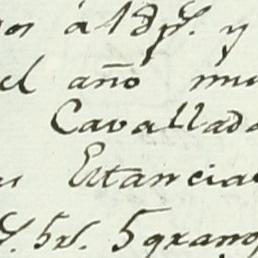 á 18 ps. y
el año
Cavallad
Estancia
5 rs. 5 grano